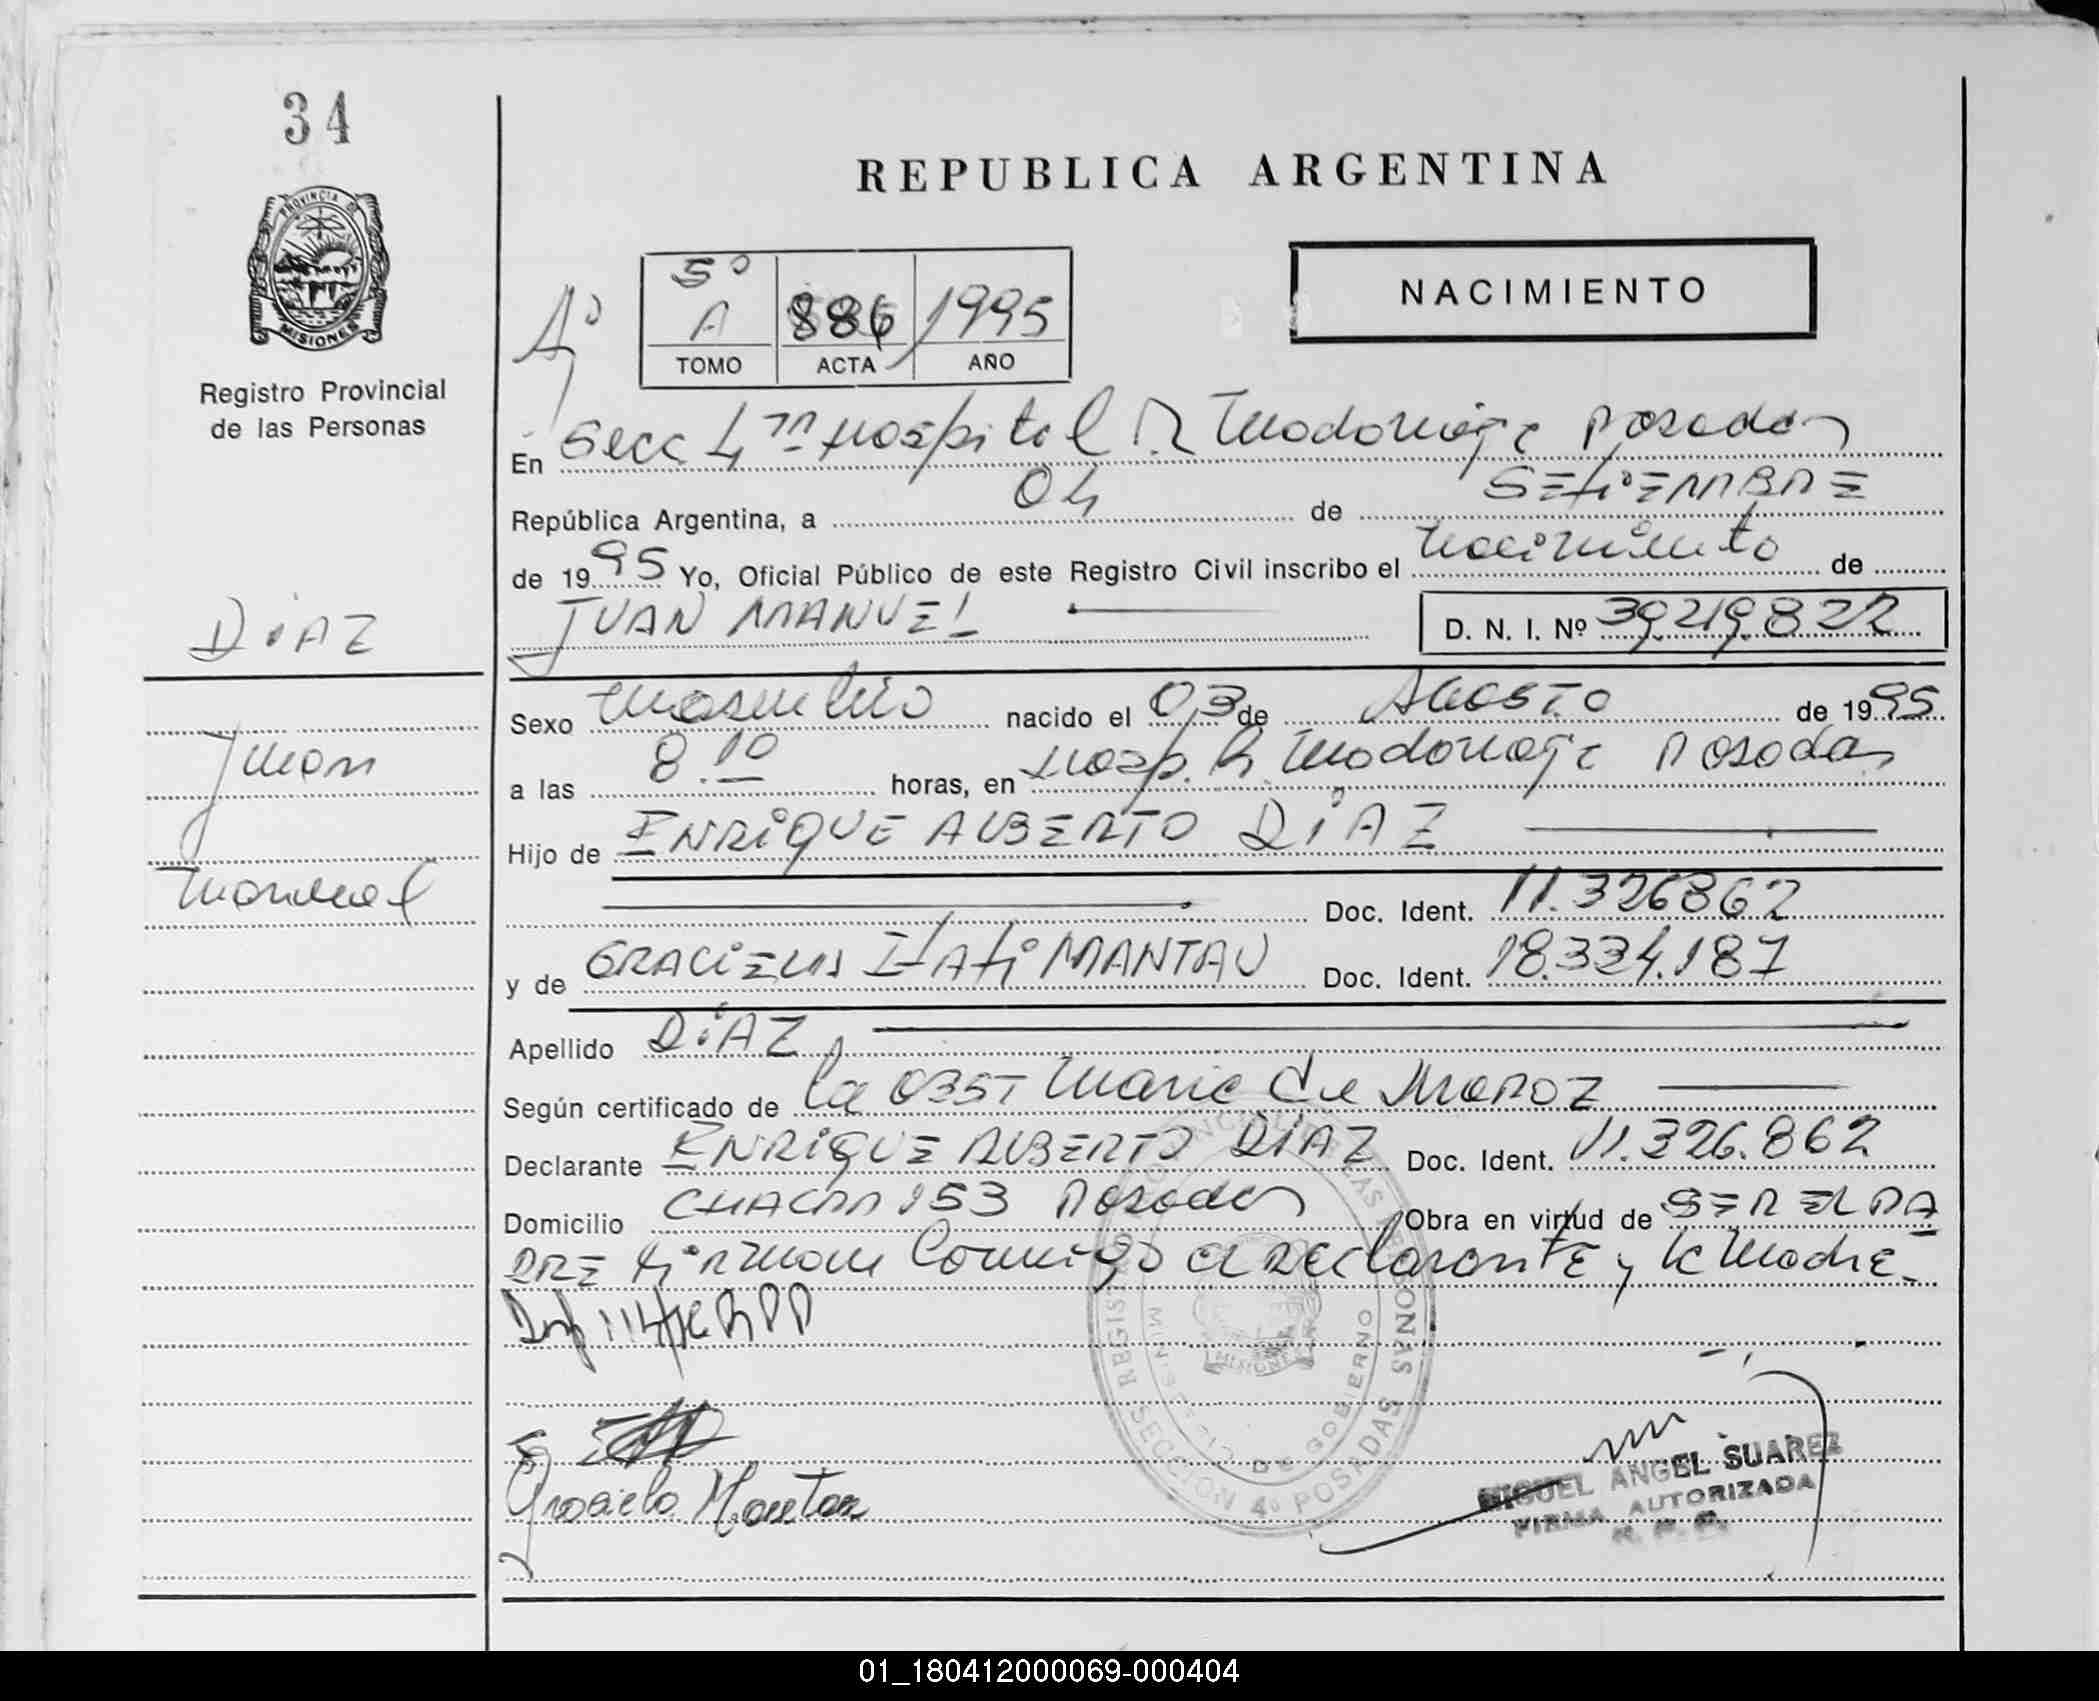 34
REPUBLICA ARGENTINA
PROVINCIA DE
MISIONES
Registro Provincial
de las Personas
4º
5º
A 886 1995
TOMO ACTA AÑO
NACIMIENTO
En Secc 4ta Hospital R Madariaga Posadas
República Argentina, a 04 de SEtiEMBRE
de 1995 Yo, Oficial Público de este Registro Civil inscribo el Nacimiento de
JUAN MANUEL D. N. I. Nº 39.219.822
DiAZ
Juan
Manuel
Sexo Masculino nacido el 03 de AGOSTO de 1995
a las 8.10 horas, en Hosp. R. Madariaga Posadas
Hijo de ENRiQUE ALBERTO DiAZ
Doc. Ident. 11.326862
y de GRACiELA ItAti MANTAU Doc. Ident. 18.334.187
Apellido DiAZ
Según certificado de la OBST Maria de
Declarante ENRiQUE ALBERTO DiAZ Doc. Ident. 11.326.862
Domicilio CHACRA 153 Posadas Obra en virtud de SER EL PA
DRE firman Conmigo el DEclarantE y la Madre
Graciela Mantau
REGISTRO PROVINCIAL DE LAS PERSONAS
MINISTERIO DE GOBIERNO
MISIONES
SECCION 4º POSADAS
MIGUEL ANGEL SUAREZ
FIRMA AUTORIZADA
R. P. P.
01_180412000069-000404